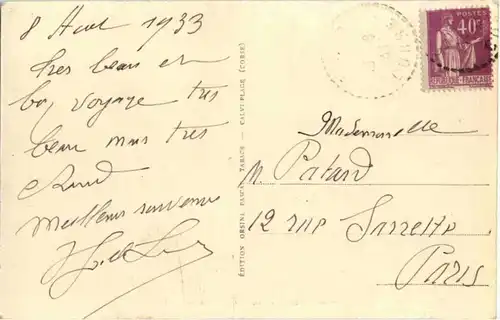 8 Aout 1933
tres beau et
bon voyage tres
beau mais tres
chaud
Meilleurs souvenirs
ÉDITION ORSINI TABACS — CALVI-PLAGE (CORSE)
POSTES
40c
REPUBLIQUE FRANÇAISE
Mademoiselle
M. Patard
12 rue Sarrette
Paris